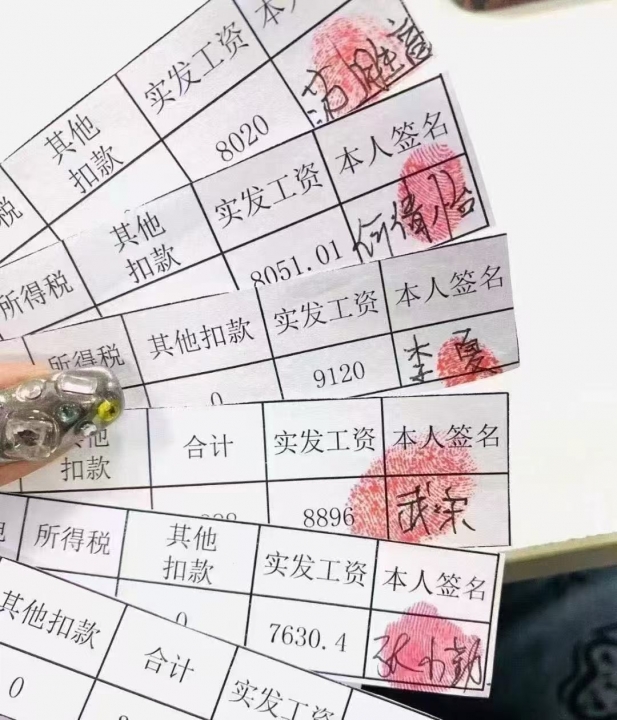 本人
实发工资
其他
扣款
8020
税
本人签名
实发工资
其他
扣款
所得税
8051.01
何倩怡
本人签名
实发工资
其他扣款
所得税
李夏
9120
0
本人签名
实发工资
合计
其他
扣款
武宋
8896
本人签名
实发工资
其他
扣款
所得税
7630.4
0
其他扣款
合计
实发工资
0